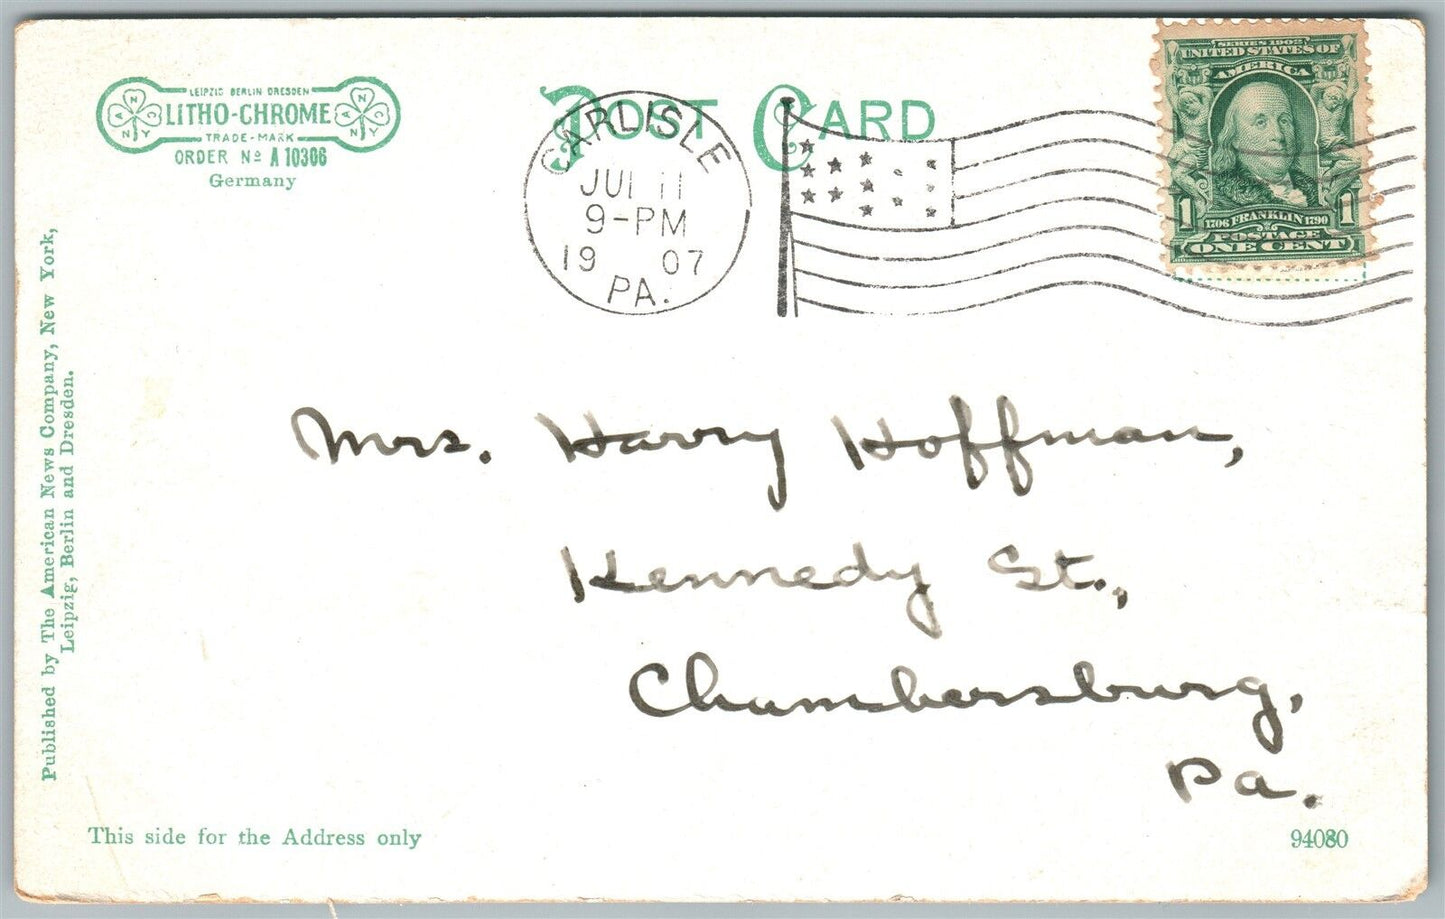 LEIPZIG BERLIN DRESDEN
LITHO-CHROME
TRADE-MARK
N A N Y
N A N Y
ORDER No A 10306
Germany
POST CARD
CARLISLE
JUL 11
9-PM
19 07
PA.
SERIES 1902
UNITED STATES OF
AMERICA
1 1
1706 FRANKLIN 1790
POSTAGE
ONE CENT
Published by The American News Company, New York,
Leipzig, Berlin and Dresden.
Mrs. Harry Hoffman,
Kennedy St.,
Chambersburg,
Pa.
This side for the Address only
94080